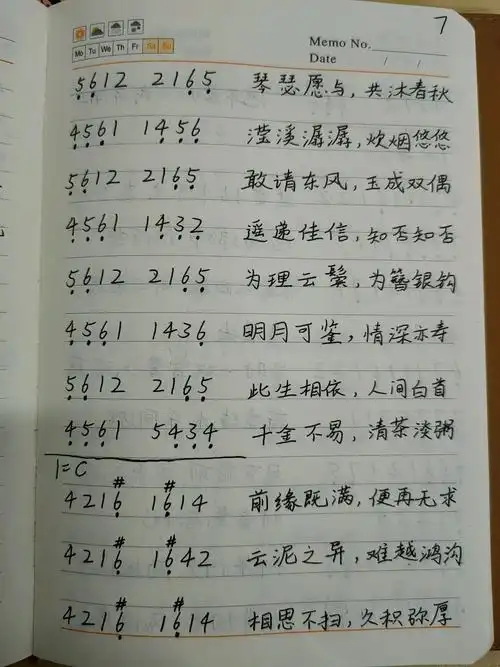 7
Mo Tu We Th Fr Sa Su
Memo No.
Date / /
5612 2165 琴瑟愿与，共沐春秋
4561 1456 滢溪潺潺，炊烟悠悠
5612 2165 敢请东风，玉成双偶
4561 1432 遥递佳信，知否知否
5612 2165 为理云鬓，为簪银钩
4561 1436 明月可鉴，情深亦寿
5612 2165 此生相依，人间白首
4561 5434 千金不易，清茶淡粥
1=C
421#6 1#614 前缘既满，便再无求
421#6 1#642 云泥之异，难越鸿沟
421#6 1#614 相思不扫，久积弥厚